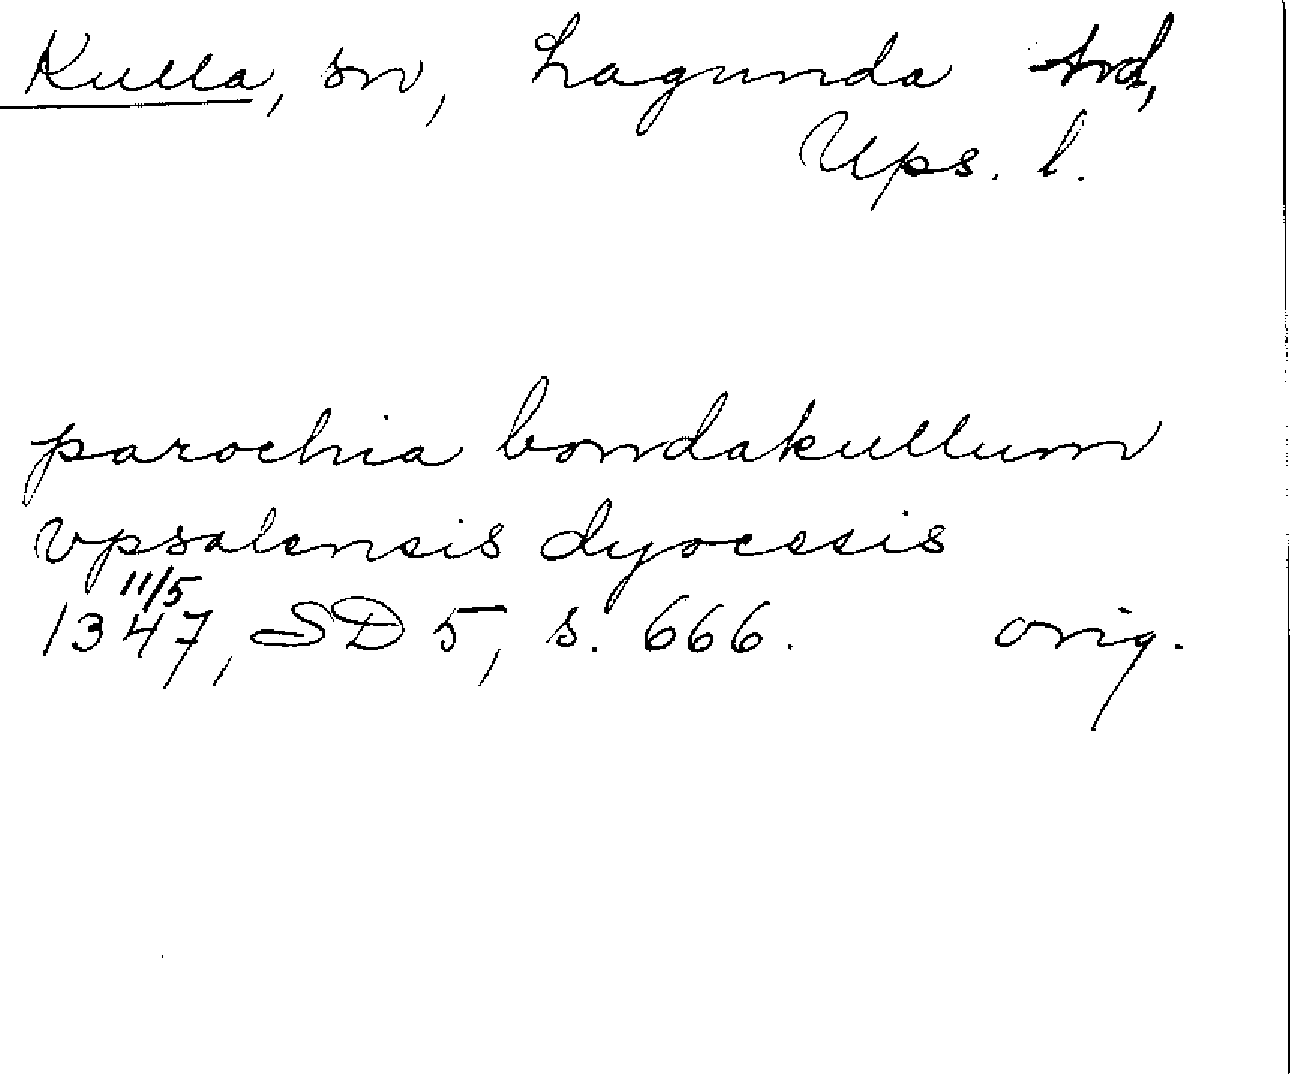 Kulla, sn, Lagunda hd,
Ups. l.
parochia bondakullum
vpsalensis dyocesis
11/5
1347, SD 5, s. 666. orig.